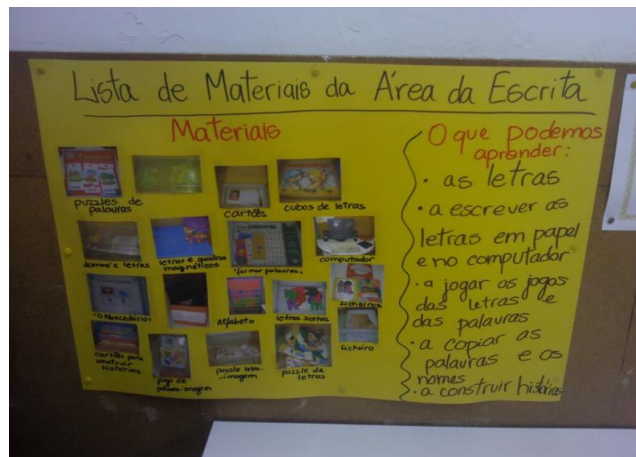 Lista de Materiais da Área da Escrita
Materiais
puzzles de
palavras
cartões
cubos de letras
dominó e letras
letras e quadros
magnéticos
"formar palavras"
computador
"O Abecedário"
Alfabeto
letras soltas
ficheiros
cartões para
construir
histórias
jogo de
palavra-imagem
puzzle letra-
-imagem
puzzle de
letras
ficheiro
O que podemos
aprender:
• as letras
• a escrever as
letras em papel
e no computador
• a jogar os jogos
das letras e
das palavras
• a copiar as
palavras e os
nomes
• a construir histórias